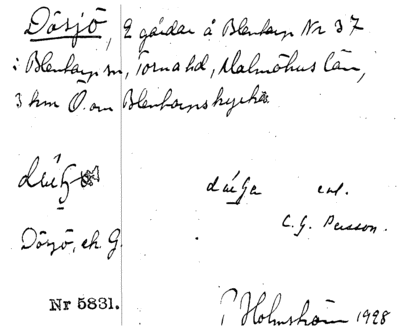 Dösjö, 2 gårdar å Blentarp Nr 37
i Blentarp sn, Torna hd, Malmöhus län,
3 km Ö. om Blentarps kyrka.
enl.
C. G. Persson.
Dösjö, ek G.
Nr 5831.
Holmström 1928